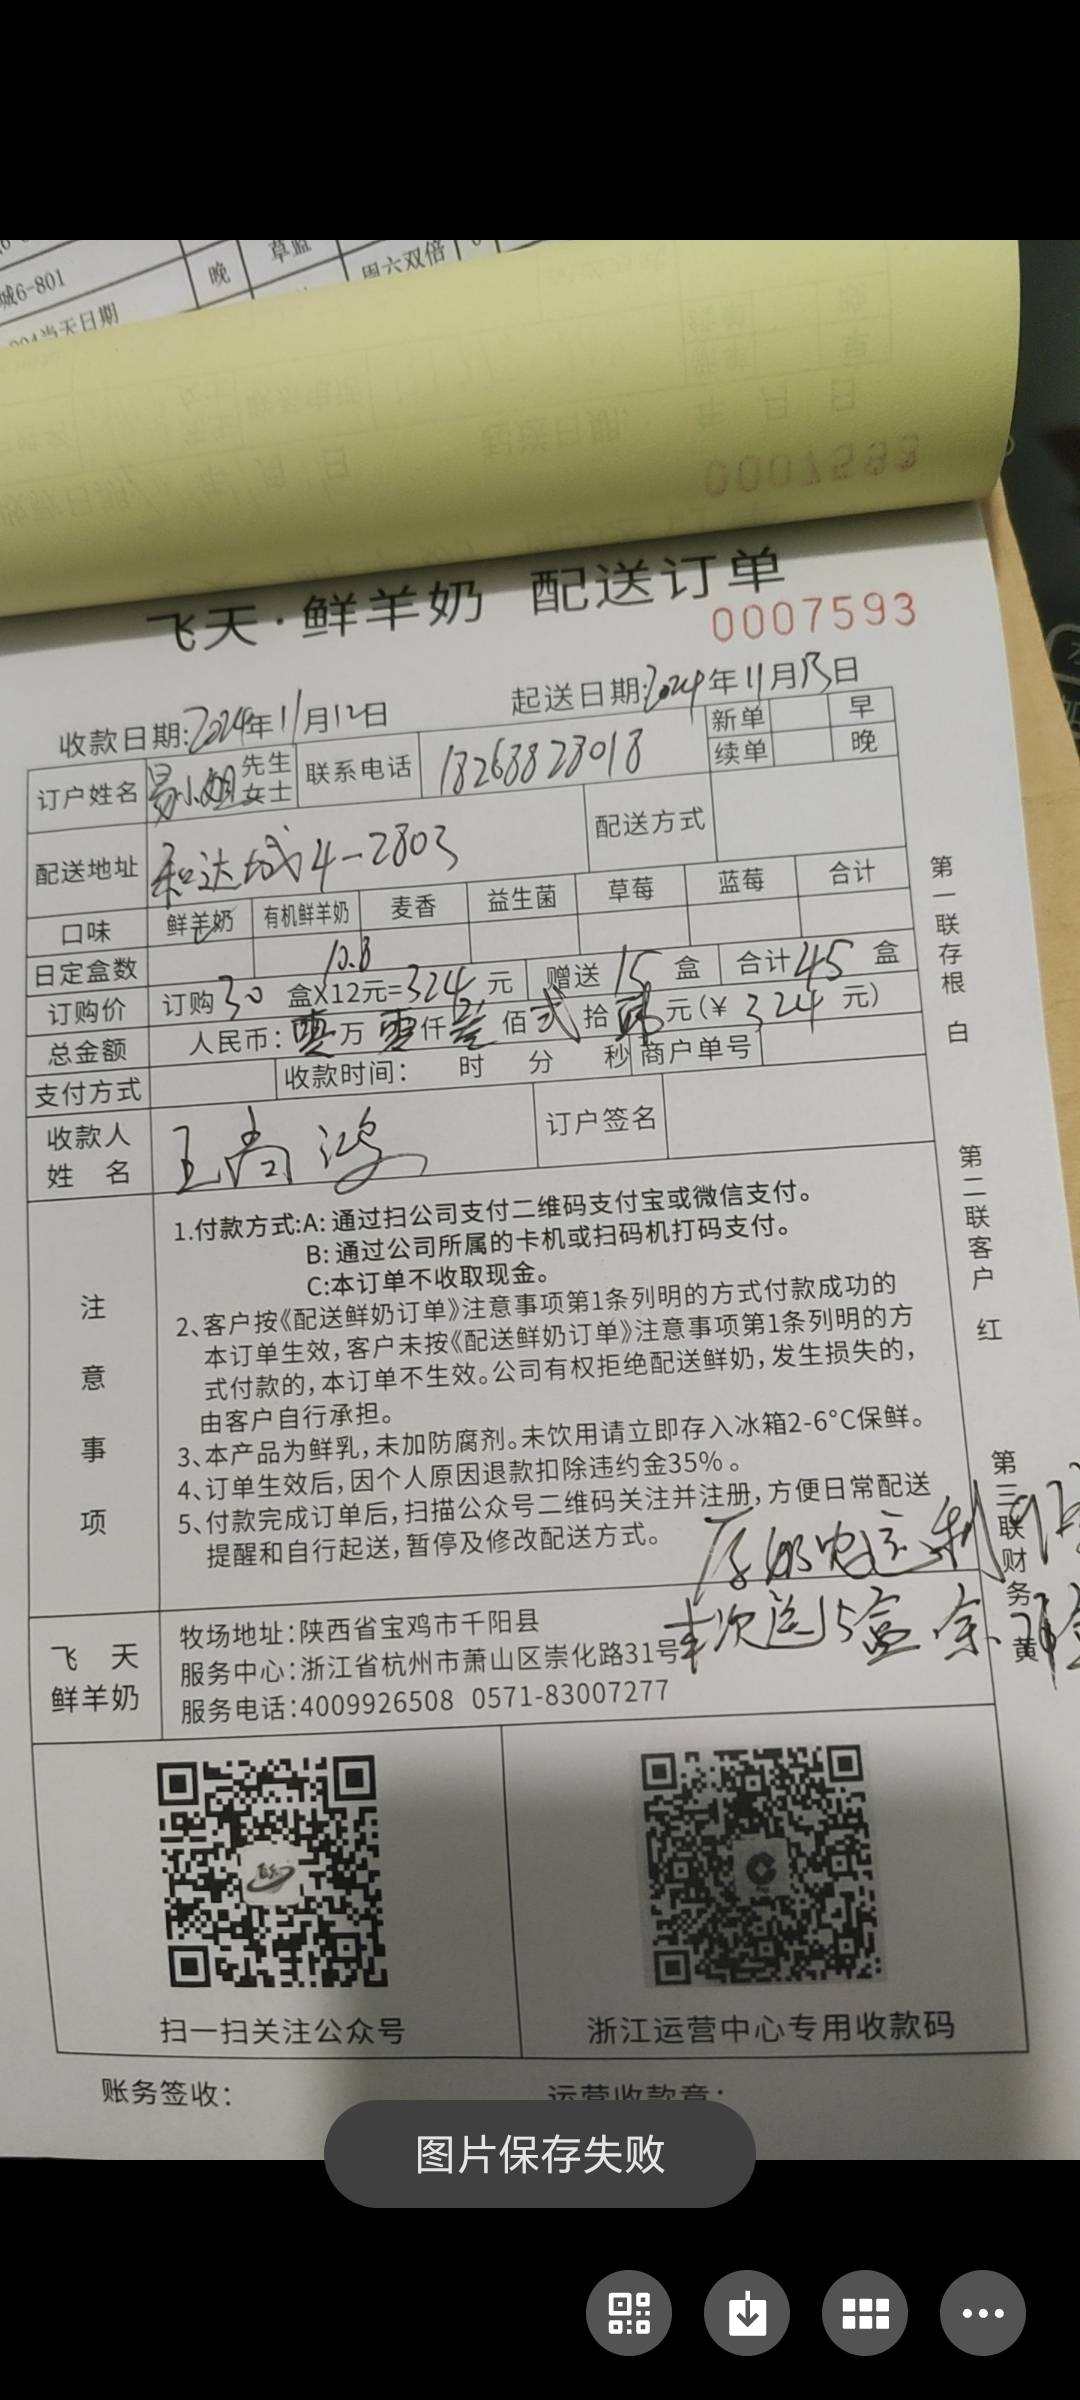 城6-801
晚
草莓
周六双倍
当天日期
飞天·鲜羊奶 配送订单
0007593
收款日期:2024年11月12日
起送日期:2024年11月13日
订户姓名 易小姐 先生 女士
联系电话 18268828018
新单 早
续单 晚
配送地址 和达城4-2803
配送方式
口味 鲜羊奶 有机鲜羊奶 麦香 益生菌 草莓 蓝莓 合计
日定盒数
10.8
订购价 订购30盒X12元=324元 赠送15盒 合计45盒
总金额 人民币:零万零仟叁佰贰拾肆元(¥324元)
支付方式 收款时间: 时 分 秒 商户单号
收款人姓名 王尚鸿 订户签名
注意事项
1.付款方式:A:通过扫公司支付二维码支付宝或微信支付。
B:通过公司所属的卡机或扫码机打码支付。
C:本订单不收取现金。
2、客户按《配送鲜奶订单》注意事项第1条列明的方式付款成功的
本订单生效,客户未按《配送鲜奶订单》注意事项第1条列明的方
式付款的,本订单不生效。公司有权拒绝配送鲜奶,发生损失的,
由客户自行承担。
3、本产品为鲜乳,未加防腐剂。未饮用请立即存入冰箱2-6°C保鲜。
4、订单生效后,因个人原因退款扣除违约金35%。
5、付款完成订单后,扫描公众号二维码关注并注册,方便日常配送
提醒和自行起送,暂停及修改配送方式。
本次送15盒
飞天鲜羊奶
牧场地址:陕西省宝鸡市千阳县
服务中心:浙江省杭州市萧山区崇化路31号
服务电话:4009926508 0571-83007277
第一联存根 白
第二联客户 红
第三联财务 黄
扫一扫关注公众号
浙江运营中心专用收款码
账务签收:
运营收款章:
图片保存失败